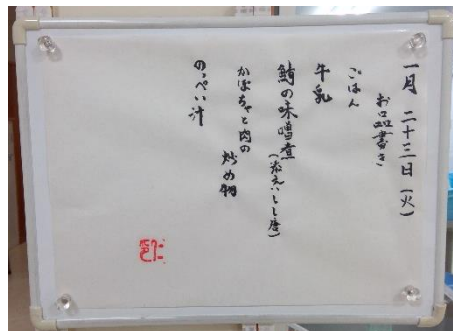 一月 二十三日（火）
お品書き
ごはん
牛乳
鯖の味噌煮（添え：しし唐）
かぼちゃと肉の
炒め物
のっぺい汁